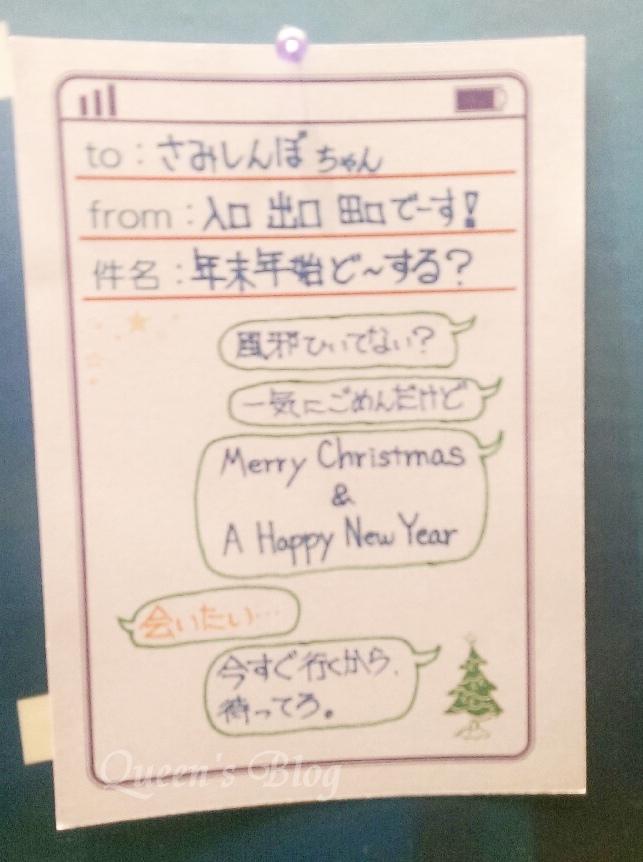 to：さみしんぼちゃん
from：入口 出口 田口でーす！
件名：年末年始ど～する？
風邪ひいてない？
一気にごめんだけど
Merry Christmas
&
A Happy New Year
会いたい…
今すぐ行くから、
待ってろ。
Queen's Blog